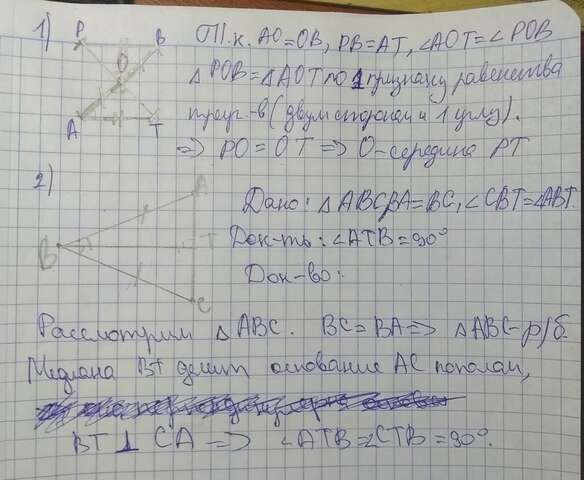 1) P B Т.к. AO=OB, PB=AT, ∠AOT=∠POB
O
△POB=△AOT по 1 признаку равенства
A T треуг-в (двум сторонам и 1 углу).
=> PO=OT => O-середина PT
2) A
Дано: △ABC, BA=BC, ∠CBT=∠ABT.
B T Док-ть: ∠ATB=90°
C Док-во:
Рассмотрим △ABC. BC=BA=> △ABC-р/б.
Медиана BT делит основание AC пополам,
BT ⊥ CA => ∠ATB=∠CTB=90°.